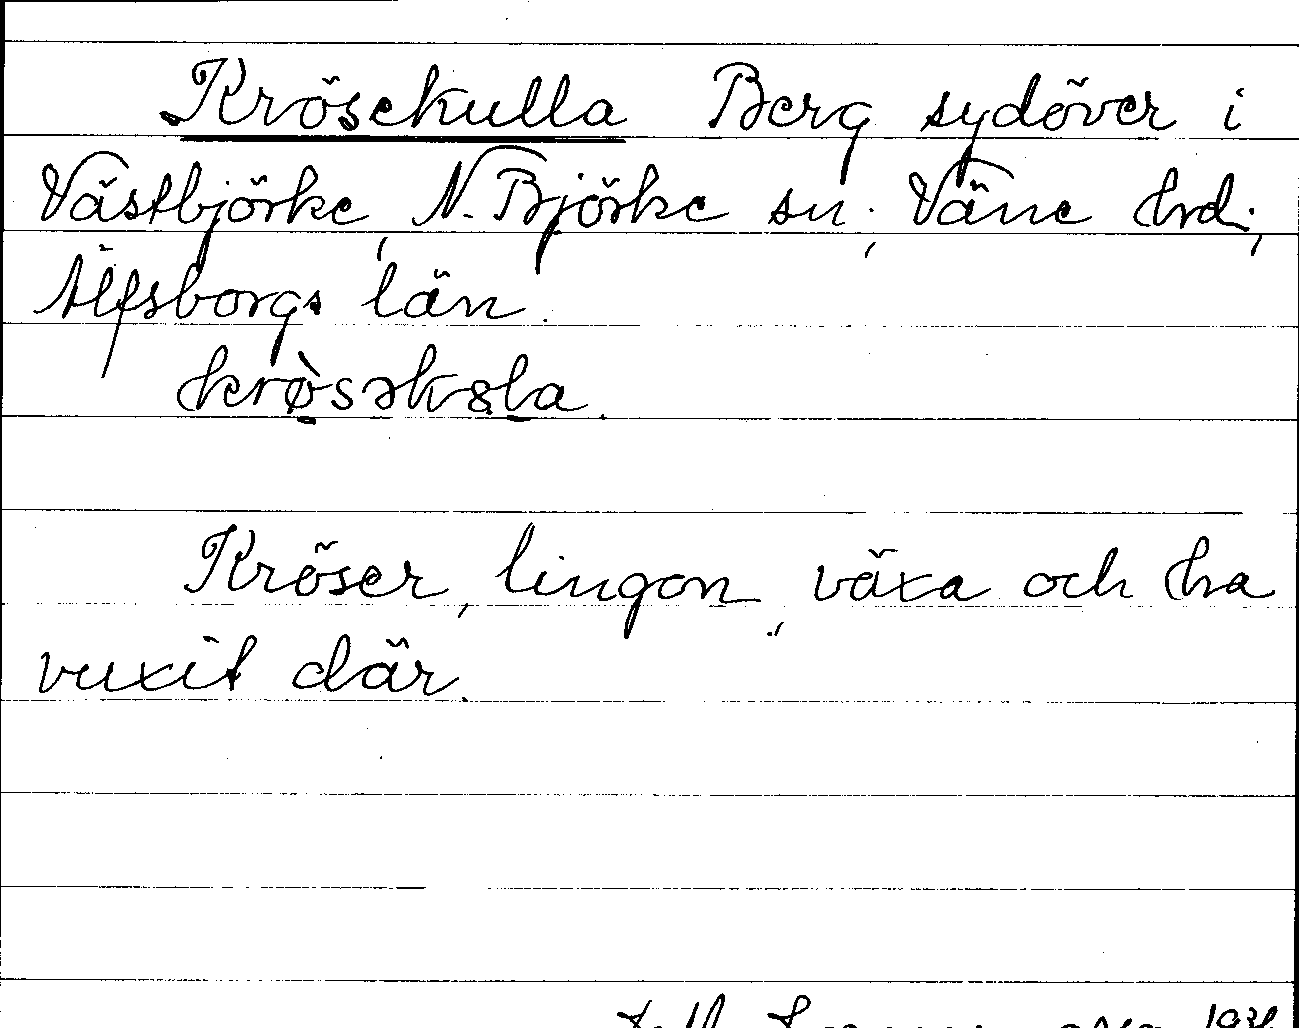 Krösekulla Berg sydöver i
Västbjörke, N. Björke sn; Väne hd.,
Älfsborgs län.
krø̀səkɷla.
Kröser, lingon, växa och ha
vuxit där.